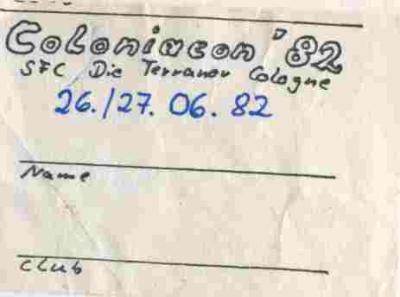 Coloniacon '82
SFC Die Terraner Cologne
26./27. 06. 82
Name
Club